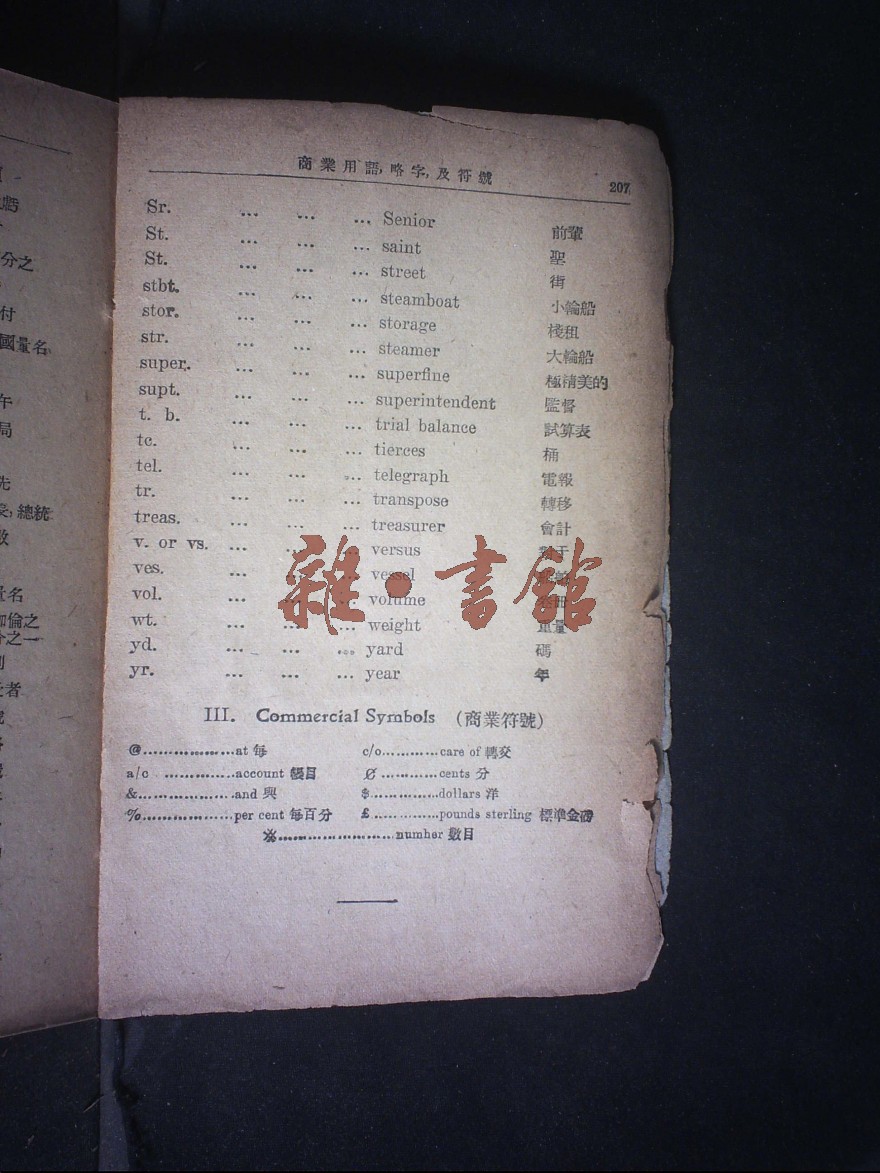 商業用語,略字,及符號 207
Sr. ... ... ... Senior 前輩
St. ... ... ... saint 聖
St. ... ... ... street 街
stbt. ... ... ... steamboat 小輪船
stor. ... ... ... storage 棧租
str. ... ... ... steamer 大輪船
super. ... ... ... superfine 極精美的
supt. ... ... ... superintendent 監督
t. b. ... ... ... trial balance 試算表
tc. ... ... ... tierces 桶
tel. ... ... ... telegraph 電報
tr. ... ... ... transpose 轉移
treas. ... ... ... treasurer 會計
v. or vs. ... ... ... versus
ves. ... ... ... vessel
vol. ... ... ... volume
wt. ... ... ... weight 重量
yd. ... ... ... yard 碼
yr. ... ... ... year 年
雜·書館
III. Commercial Symbols (商業符號)
@..................at 每 c/o............care of 轉交
a/c ..............account 賬目 ₵ ............cents 分
&...................and 與 $..............dollars 洋
%..................per cent 每百分 £..............pounds sterling 標準金磅
※.......................number 數目
分之
付
國量名
午
局
先
總統
名
加倫之
分之一
者